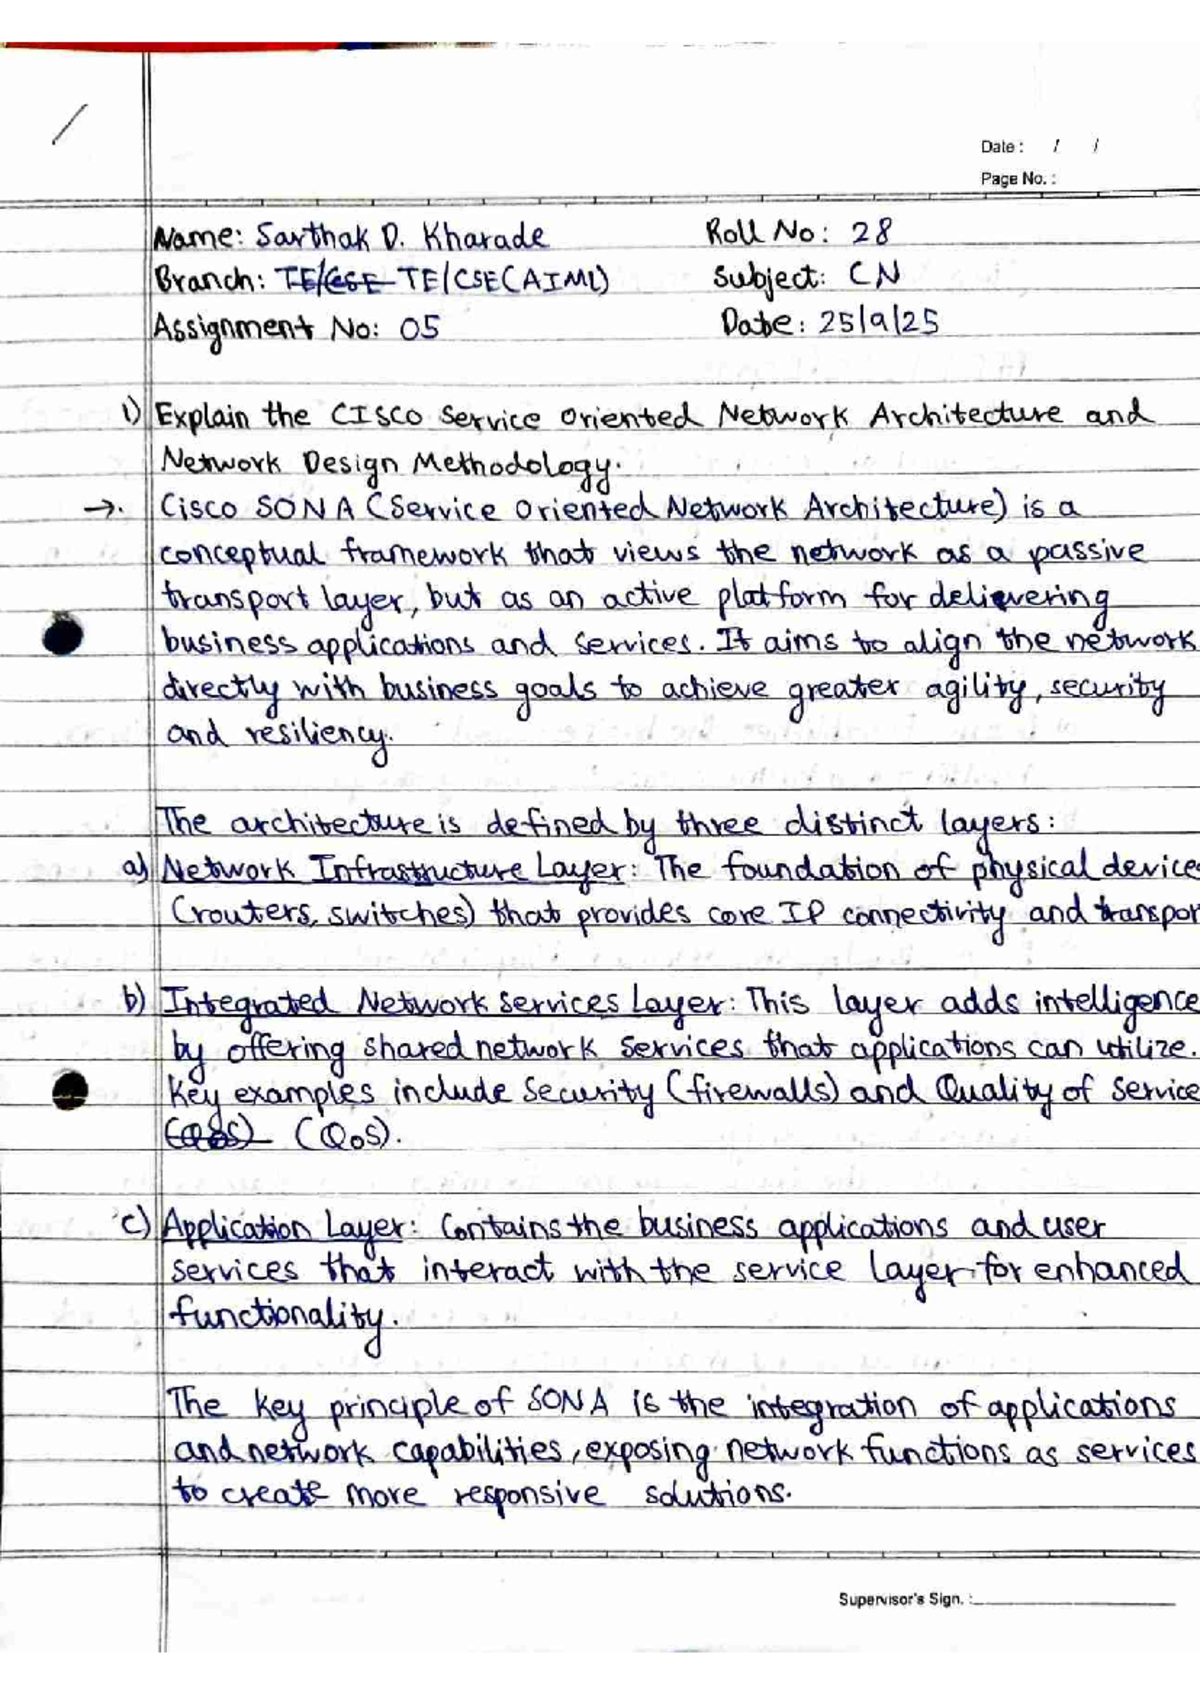 Date : / /
Page No. :
Name: Sarthak D. Kharade Roll No: 28
Branch: TE/CSE TE/CSE(AIML) Subject: CN
Assignment No: 05 Date: 25/9/25
1) Explain the CISCO Service Oriented Network Architecture and
Network Design Methodology.
→. Cisco SONA (Service Oriented Network Architecture) is a
conceptual framework that views the network as a passive
transport layer, but as an active platform for delievering
business applications and services. It aims to align the network
directly with business goals to achieve greater agility, security
and resiliency.
The architecture is defined by three distinct layers:
a) Network Infrastructure Layer: The foundation of physical device
(routers, switches) that provides core IP connectivity and transpor
b) Integrated Network Services Layer: This layer adds intelligence
by offering shared network services that applications can utilize.
Key examples include Security (firewalls) and Quality of Service
(QoS) (QoS).
c) Application Layer: Contains the business applications and user
services that interact with the service layer for enhanced
functionality.
The key principle of SONA is the integration of applications
and network capabilities, exposing network functions as services
to create more responsive solutions.
Supervisor's Sign. :